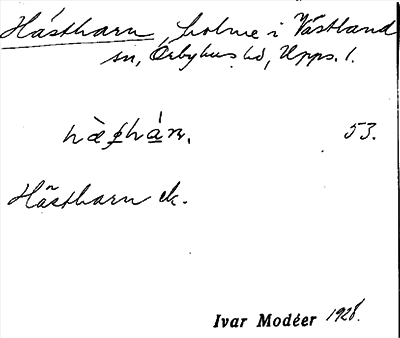 Hästharn, holme i Västland
sn, Örbyhus hd, Upps. l.
hæ̀s̱ẖáṉ. 53.
Hästharn ek.
Ivar Modéer 1928.